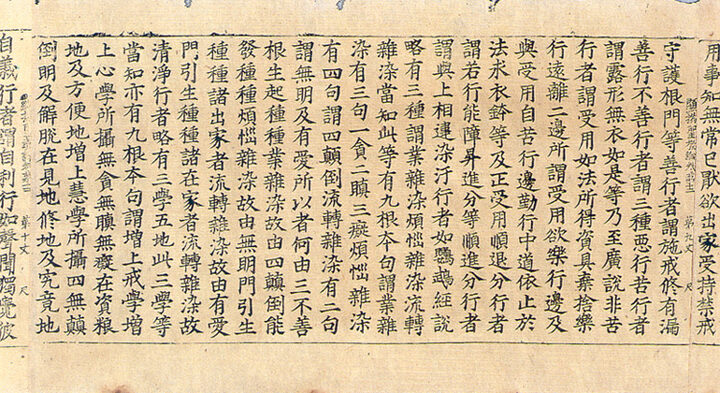 用事知無常已猒欲出家受持禁戒
第九丈 尺
守護根門等善行者謂施戒修有漏
善行不善行者謂三種惡行苦行者
謂露形無衣如是等乃至廣說非苦
行者謂受用如法所得資具棄捨樂
行遠離二邊所謂受用欲樂行邊及
與受用自苦行邊勤行中道依止於
法求衣鉢等及正受用順退分行者
謂若行能障昇進分等順進分行者
謂與上相違染汙行者如鸚鵡經說
略有三種謂業雜染煩惱雜染流轉
雜染當知此等有九根本句謂業雜
染有三句一貪二瞋三癡煩惱雜染
有四句謂四顛倒流轉雜染有二句
謂無明及有愛所以者何由三不善
根生起種種業雜染故由四倒能
發種種煩惱雜染故由無明門引生
種種諸出家者流轉雜染故由有愛
門引生種種諸在家者流轉雜染故
清淨行者略有三學五地此三學等
當知亦有九根本句謂增上戒學增
上心學所攝無貪無瞋無癡在資粮
地及方便地增上慧學所攝四無顛
倒明及解脫在見地修地及究竟地
第十丈 尺
自義行者謂自利行如聲聞獨覺彼